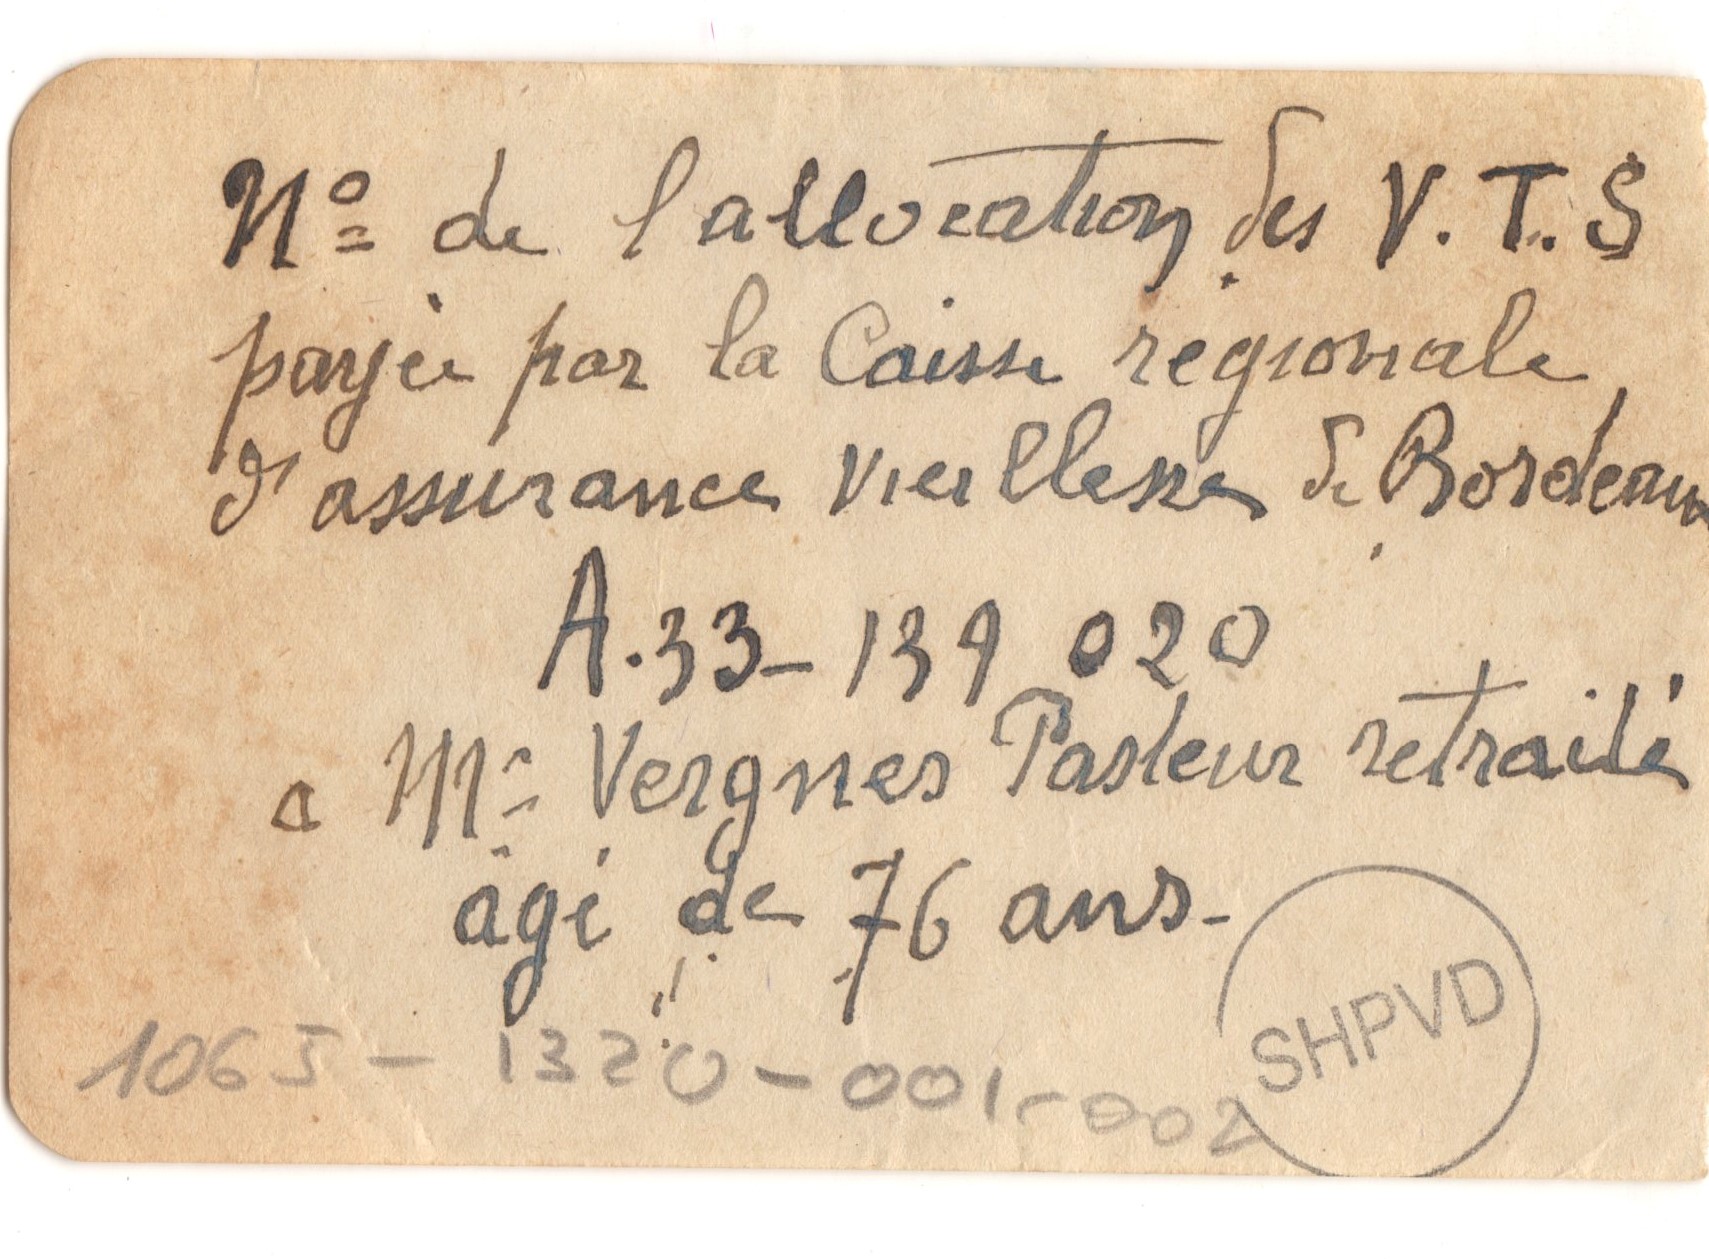 Nº de l'allocation des V.T.S
payée par la Caisse régionale
d'assurance vieillesse de Bordeaux
A.33-139 020
a Mr Vergnes Pasteur retraité
âgé de 76 ans-
1065-1320-001-002
SHPVD